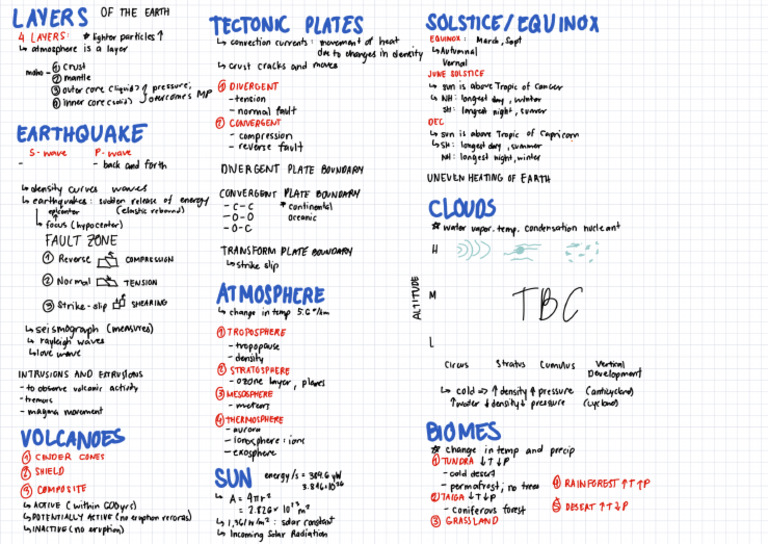 LAYERS OF THE EARTH
4 LAYERS: * lighter particles ↑
↳ atmosphere is a layer
① crust
② mantle
③ outer core (liquid) ↑ pressure;
④ inner core (solid) overcomes MP
EARTHQUAKE
S-wave P-wave
- - back and forth
↳ density curves waves
↳ earthquakes: sudden release of energy
epicenter (elastic rebound)
↳ focus (hypocenter)
FAULT ZONE
① Reverse COMPRESSION
② Normal TENSION
③ Strike-slip SHEARING
↳ seismograph (measures)
↳ rayleigh waves
↳ love wave
INTRUSIONS AND EXTRUSIONS
- to observe volcanic activity
- tremors
- magma movement
VOLCANOES
① CINDER CONES
② SHIELD
③ COMPOSITE
↳ ACTIVE (within 600yrs)
↳ POTENTIALLY ACTIVE (no eruption records)
↳ INACTIVE (no eruption)
TECTONIC PLATES
↳ convection currents: movement of heat
due to changes in density
↳ crust cracks and moves
① DIVERGENT
- tension
- normal fault
② CONVERGENT
- compression
- reverse fault
DIVERGENT PLATE BOUNDARY
CONVERGENT PLATE BOUNDARY
- C-C * continental
- O-O oceanic
- O-C
TRANSFORM PLATE BOUNDARY
↳ strike slip
ATMOSPHERE
↳ change in temp 5.6°/km
① TROPOSPHERE
- tropopause
- density
② STRATOSPHERE
- ozone layer, planes
③ MESOSPHERE
- meteors
④ THERMOSPHERE
- aurora
- ionosphere: ions
- exosphere
SUN energy/s = 384.6 yW
3.846×10²⁶
↳ A = 4πr²
= 2.826 × 10²³ m²
↳ 1,361 w/m²: solar constant
↳ Incoming Solar Radiation
SOLSTICE/EQUINOX
EQUINOX: March, Sept
↳ Autumnal
Vernal
JUNE SOLSTICE
↳ sun is above Tropic of Cancer
↳ NH: longest day, winter
SH: longest night, summer
DEC
↳ sun is above Tropic of Capricorn
↳ SH: longest day, summer
NH: longest night, winter
UNEVEN HEATING OF EARTH
CLOUDS
* water vapor. temp. condensation nucleant
ALTITUDE
H
M
TBC
L
Circus Stratus Cumulus Vertical
Development
↳ cold => ↑ density ↑ pressure (anticyclone)
↑ water ↓ density ↓ pressure (cyclone)
BIOMES
* change in temp and precip
① TUNDRA ↓T ↓P
- cold desert
- permafrost; no trees
② TAIGA ↓T ↓P
- coniferous forest
③ GRASSLAND
④ RAINFOREST ↑T ↑P
⑤ DESEAT ↑T ↓P